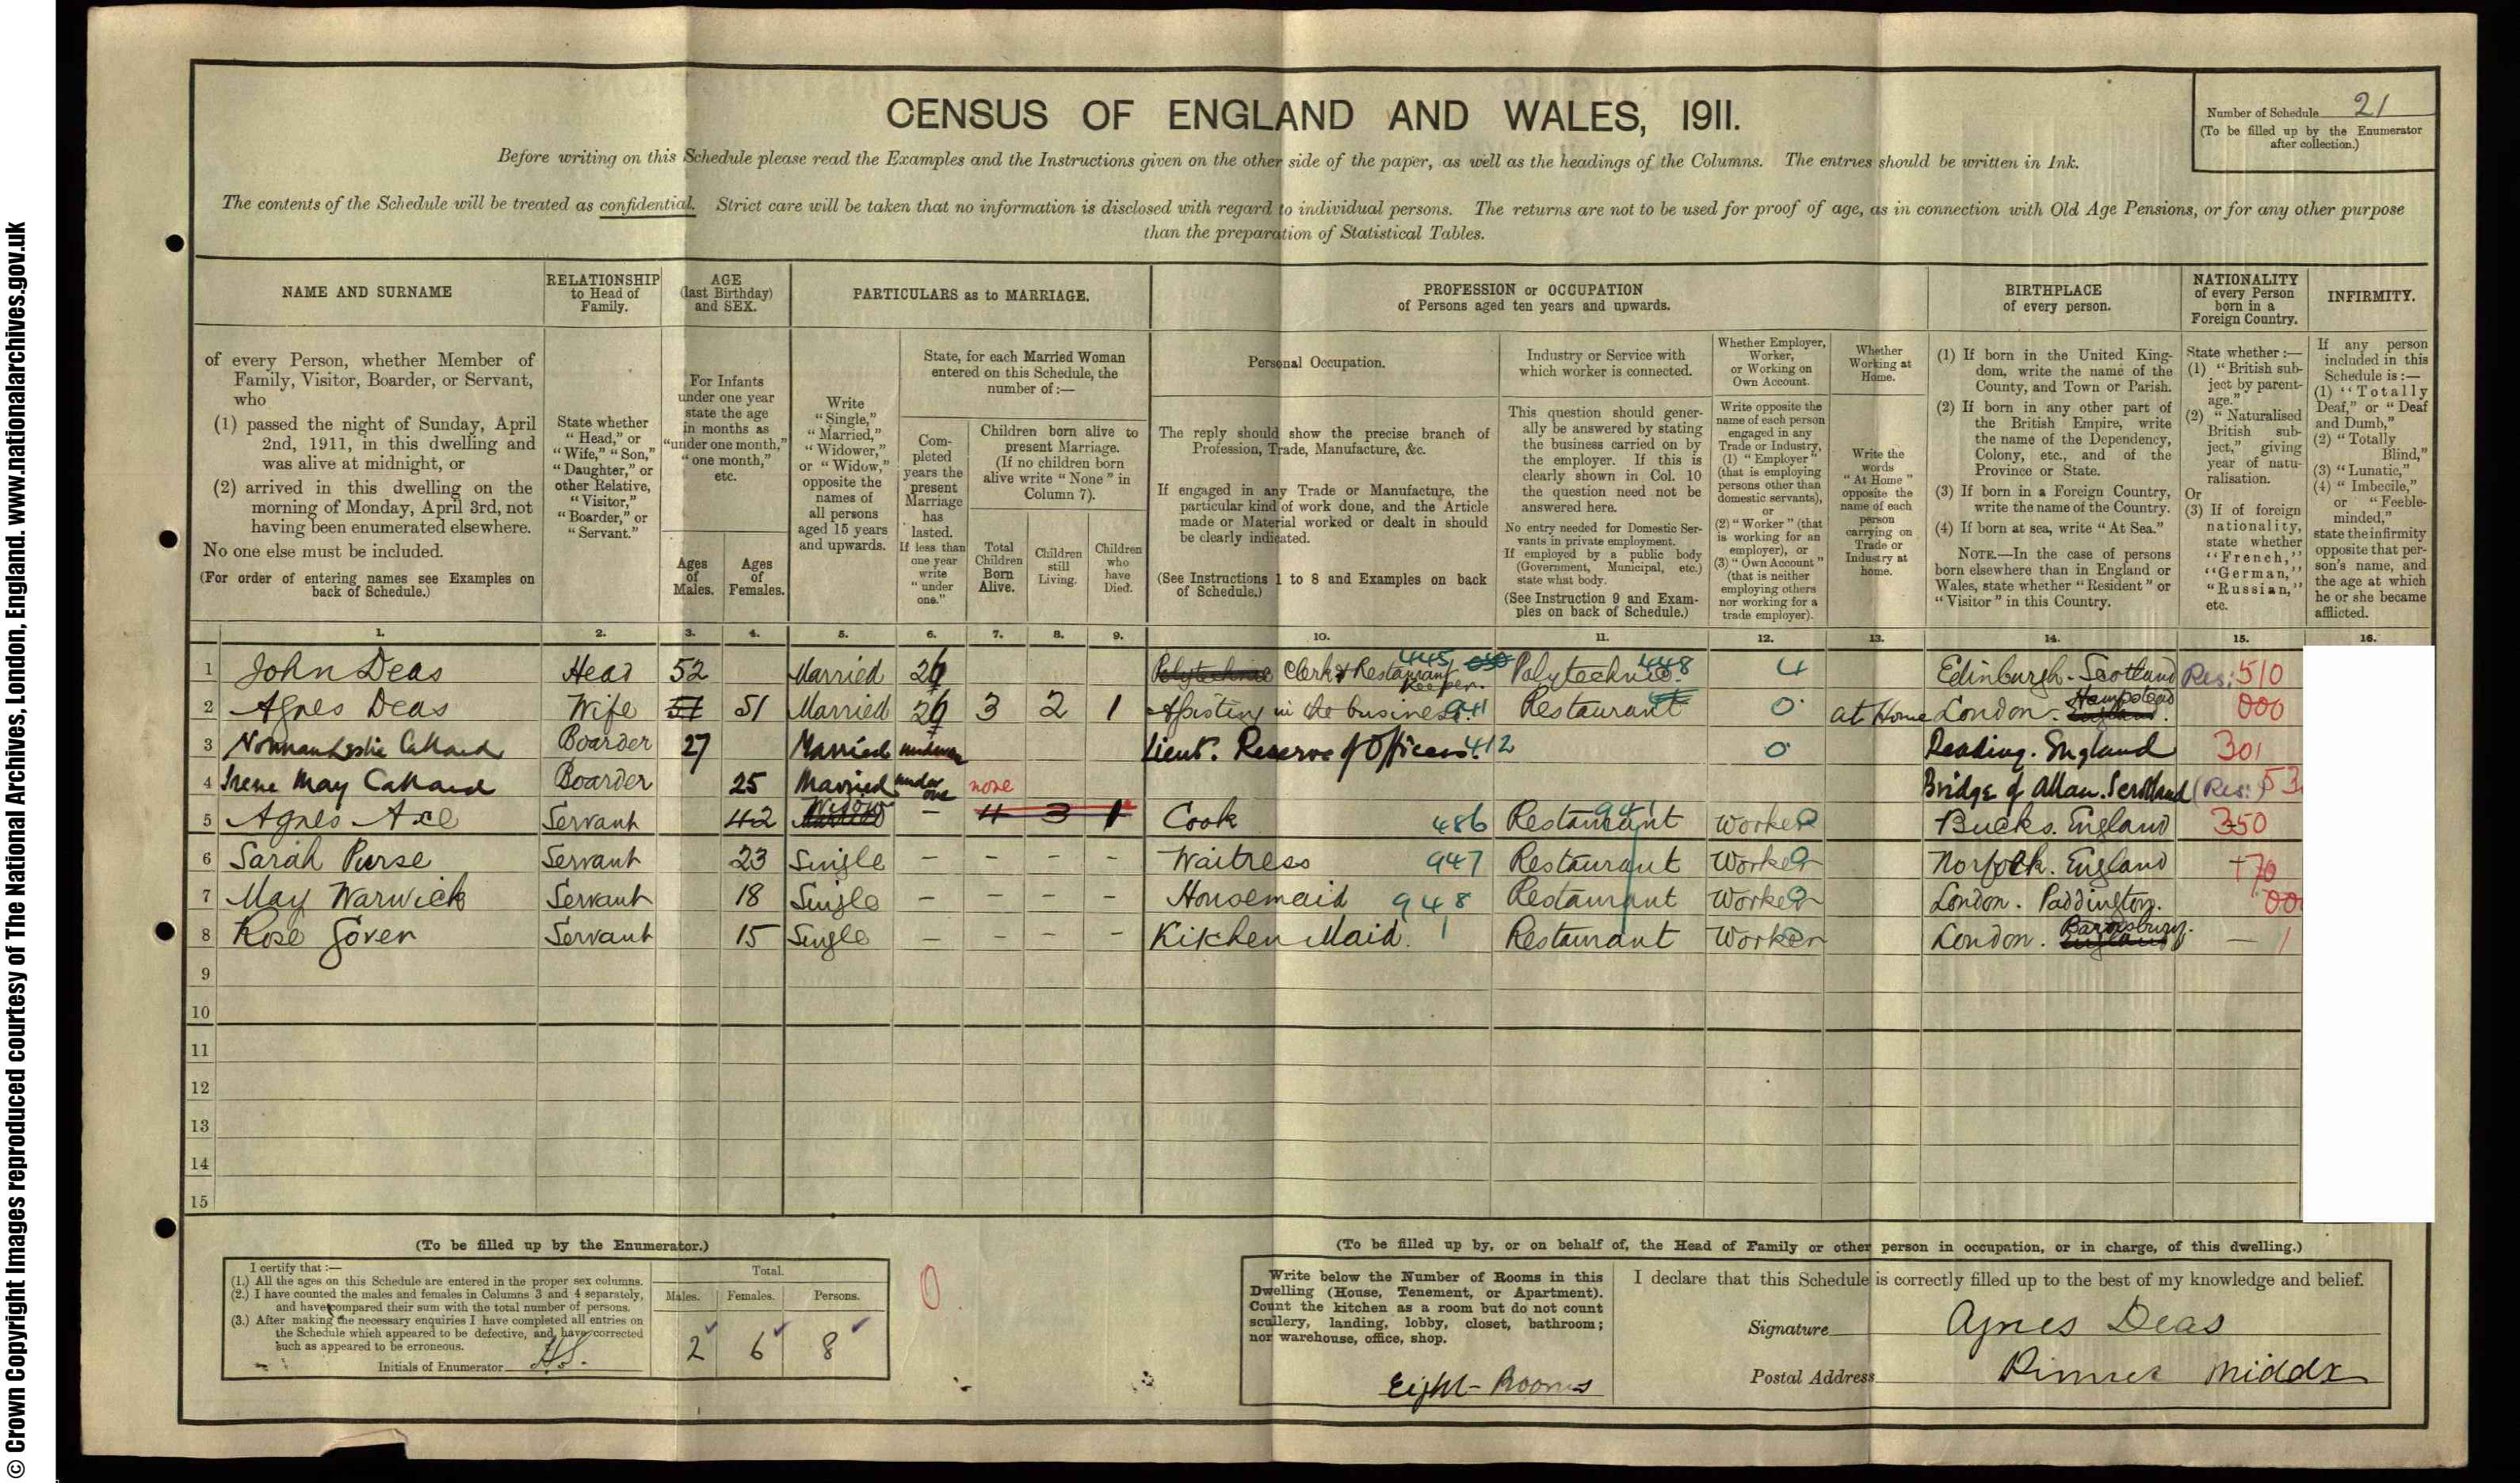 © Crown Copyright Images reproduced courtesy of The National Archives, London, England. www.nationalarchives.gov.uk
CENSUS OF ENGLAND AND WALES, 1911.
Number of Schedule 21
(To be filled up by the Enumerator
after collection.)
Before writing on this Schedule please read the Examples and the Instructions given on the other side of the paper, as well as the headings of the Columns. The entries should be written in Ink.
The contents of the Schedule will be treated as confidential. Strict care will be taken that no information is disclosed with regard to individual persons. The returns are not to be used for proof of age, as in connection with Old Age Pensions, or for any other purpose
than the preparation of Statistical Tables.
NAME AND SURNAME
of every Person, whether Member of
Family, Visitor, Boarder, or Servant,
who
(1) passed the night of Sunday, April
2nd, 1911, in this dwelling and
was alive at midnight, or
(2) arrived in this dwelling on the
morning of Monday, April 3rd, not
having been enumerated elsewhere.
No one else must be included.
(For order of entering names see Examples on
back of Schedule.)
RELATIONSHIP
to Head of
Family.
State whether
"Head," or
"Wife," "Son,"
"Daughter," or
other Relative,
"Visitor,"
"Boarder," or
"Servant."
AGE
(last Birthday)
and SEX.
For Infants
under one year
state the age
in months as
"under one month,"
"one month,"
etc.
Ages
of
Males.
Ages
of
Females.
PARTICULARS as to MARRIAGE.
Write
"Single,"
"Married,"
"Widower,"
or "Widow,"
opposite the
names of
all persons
aged 15 years
and upwards.
State, for each Married Woman
entered on this Schedule, the
number of:—
Com-
pleted
years the
present
Marriage
has
lasted.
If less than
one year
write
"under
one."
Children born alive to
present Marriage.
(If no children born
alive write "None" in
Column 7).
Total
Children
Born
Alive.
Children
still
Living.
Children
who
have
Died.
PROFESSION or OCCUPATION
of Persons aged ten years and upwards.
Personal Occupation.
The reply should show the precise branch of
Profession, Trade, Manufacture, &c.
If engaged in any Trade or Manufacture, the
particular kind of work done, and the Article
made or Material worked or dealt in should
be clearly indicated.
(See Instructions 1 to 8 and Examples on back
of Schedule.)
Industry or Service with
which worker is connected.
This question should gener-
ally be answered by stating
the business carried on by
the employer. If this is
clearly shown in Col. 10
the question need not be
answered here.
No entry needed for Domestic Ser-
vants in private employment.
If employed by a public body
(Government, Municipal, etc.)
state what body.
(See Instruction 9 and Exam-
ples on back of Schedule.)
Whether Employer,
Worker,
or Working on
Own Account.
Write opposite the
name of each person
engaged in any
Trade or Industry,
(1) "Employer"
(that is employing
persons other than
domestic servants),
or
(2) "Worker" (that
is working for an
employer), or
(3) "Own Account"
(that is neither
employing others
nor working for a
trade employer).
Whether
Working at
Home.
Write the
words
"At Home"
opposite the
name of each
person
carrying on
Trade or
Industry at
home.
BIRTHPLACE
of every person.
(1) If born in the United King-
dom, write the name of the
County, and Town or Parish.
(2) If born in any other part of
the British Empire, write
the name of the Dependency,
Colony, etc., and of the
Province or State.
(3) If born in a Foreign Country,
write the name of the Country.
(4) If born at sea, write "At Sea."
NOTE.—In the case of persons
born elsewhere than in England or
Wales, state whether "Resident" or
"Visitor" in this Country.
NATIONALITY
of every Person
born in a
Foreign Country.
State whether:—
(1) "British sub-
ject by parent-
age."
(2) "Naturalised
British sub-
ject," giving
year of natu-
ralisation.
Or
(3) If of foreign
nationality,
state whether
"French,"
"German,"
"Russian,"
etc.
INFIRMITY.
If any person
included in this
Schedule is:—
(1) "Totally
Deaf," or "Deaf
and Dumb,"
(2) "Totally
Blind,"
(3) "Lunatic,"
(4) "Imbecile,"
or "Feeble-
minded,"
state the infirmity
opposite that per-
son's name, and
the age at which
he or she became
afflicted.
1. 2. 3. 4. 5. 6. 7. 8. 9. 10. 11. 12. 13. 14. 15. 16.
1 John Deas Head 52 Married 26 Polytechnic Clerk & Restaurant Keeper. 445 Polytechnic. 448 4 Edinburgh. Scotland Res: 510
2 Agnes Deas Wife 51 51 Married 26 3 2 1 Assisting in the business. 941 Restaurant 0 at Home London. Hampstead England. 000
3 Norman Leslie Callard Boarder 27 Married Lieut. Reserve of Officers. 412 0 Reading. England 301
4 Irene May Callard Boarder 25 Married under one none Bridge of Allan. Scotland (Res:) 53
5 Agnes Axe Servant 42 Widow Married – 4 3 1 Cook 486 Restaurant 941 Worker Bucks. England 350
6 Sarah Purse Servant 23 Single – – – – Waitress 947 Restaurant Worker Norfolk. England +70
7 May Warwick Servant 18 Single – – – – Housemaid 948 Restaurant Worker London. Paddington. 00
8 Rose Gover Servant 15 Single – – – – Kitchen Maid. 1 Restaurant Worker London. Barnsbury. England — 1
9
10
11
12
13
14
15
(To be filled up by the Enumerator.)
I certify that:—
(1.) All the ages on this Schedule are entered in the proper sex columns.
(2.) I have counted the males and females in Columns 3 and 4 separately,
and have compared their sum with the total number of persons.
(3.) After making the necessary enquiries I have completed all entries on
the Schedule which appeared to be defective, and have corrected
such as appeared to be erroneous.
Initials of Enumerator HS.
Total.
Males. Females. Persons.
2 6 8
0
(To be filled up by, or on behalf of, the Head of Family or other person in occupation, or in charge, of this dwelling.)
Write below the Number of Rooms in this
Dwelling (House, Tenement, or Apartment).
Count the kitchen as a room but do not count
scullery, landing, lobby, closet, bathroom;
nor warehouse, office, shop.
Eight Rooms
I declare that this Schedule is correctly filled up to the best of my knowledge and belief.
Signature Agnes Deas
Postal Address Pinner Middx